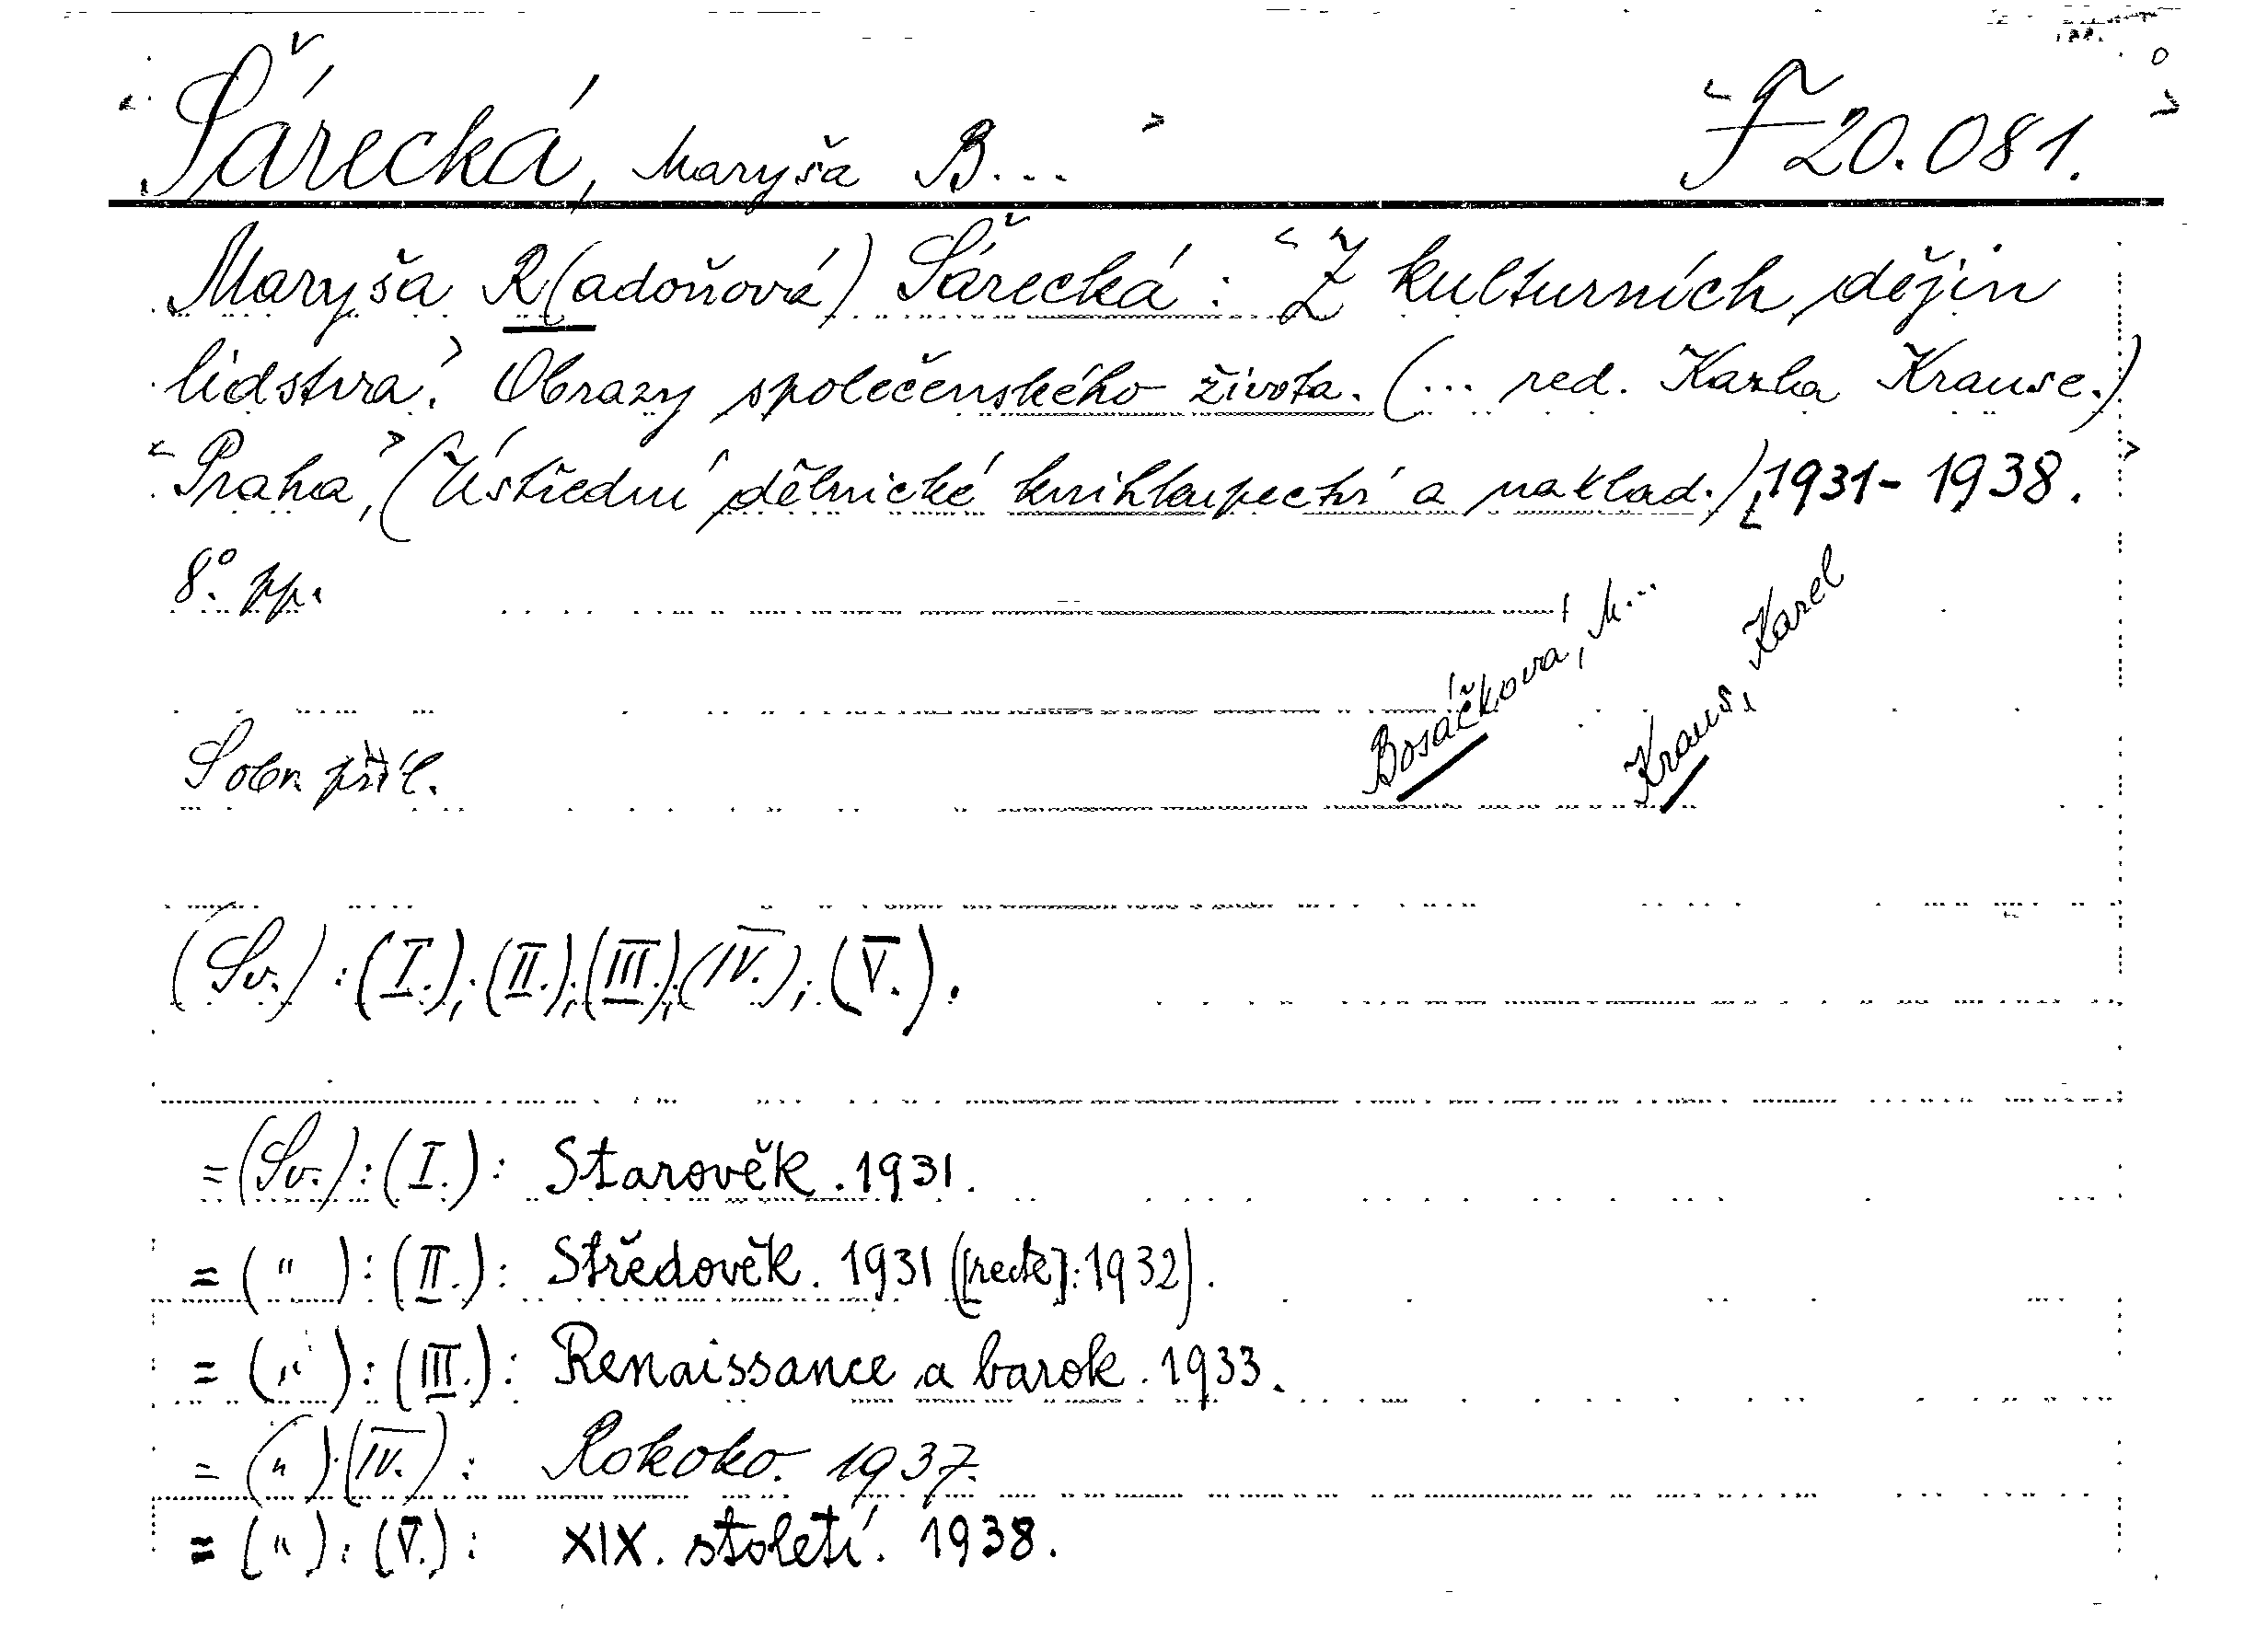 Šárecká, Maryša B... F 20.081.
Maryša R(adoňová) Šárecká: Z kulturních dějin
lidstva. Obrazy společenského života. (... red. Kazha Krause.)
Praha, (Ústřední dělnické knihkupectví a naklad.), 1931-1938.
8° pp.
Bosáčková, M...
Kraus, Karel
Sobr. příl.
(Sv.): (I.); (II.); (III.); (IV.); (V.).
=(Sv.): (I.): Starověk. 1931.
= ( " ): (II.): Středověk. 1931 ([recte]: 1932).
= ( " ): (III.): Renaissance a barok. 1933.
= ( " ): (IV.): Rokoko. 1937.
= ( " ): (V.): XIX. století. 1938.